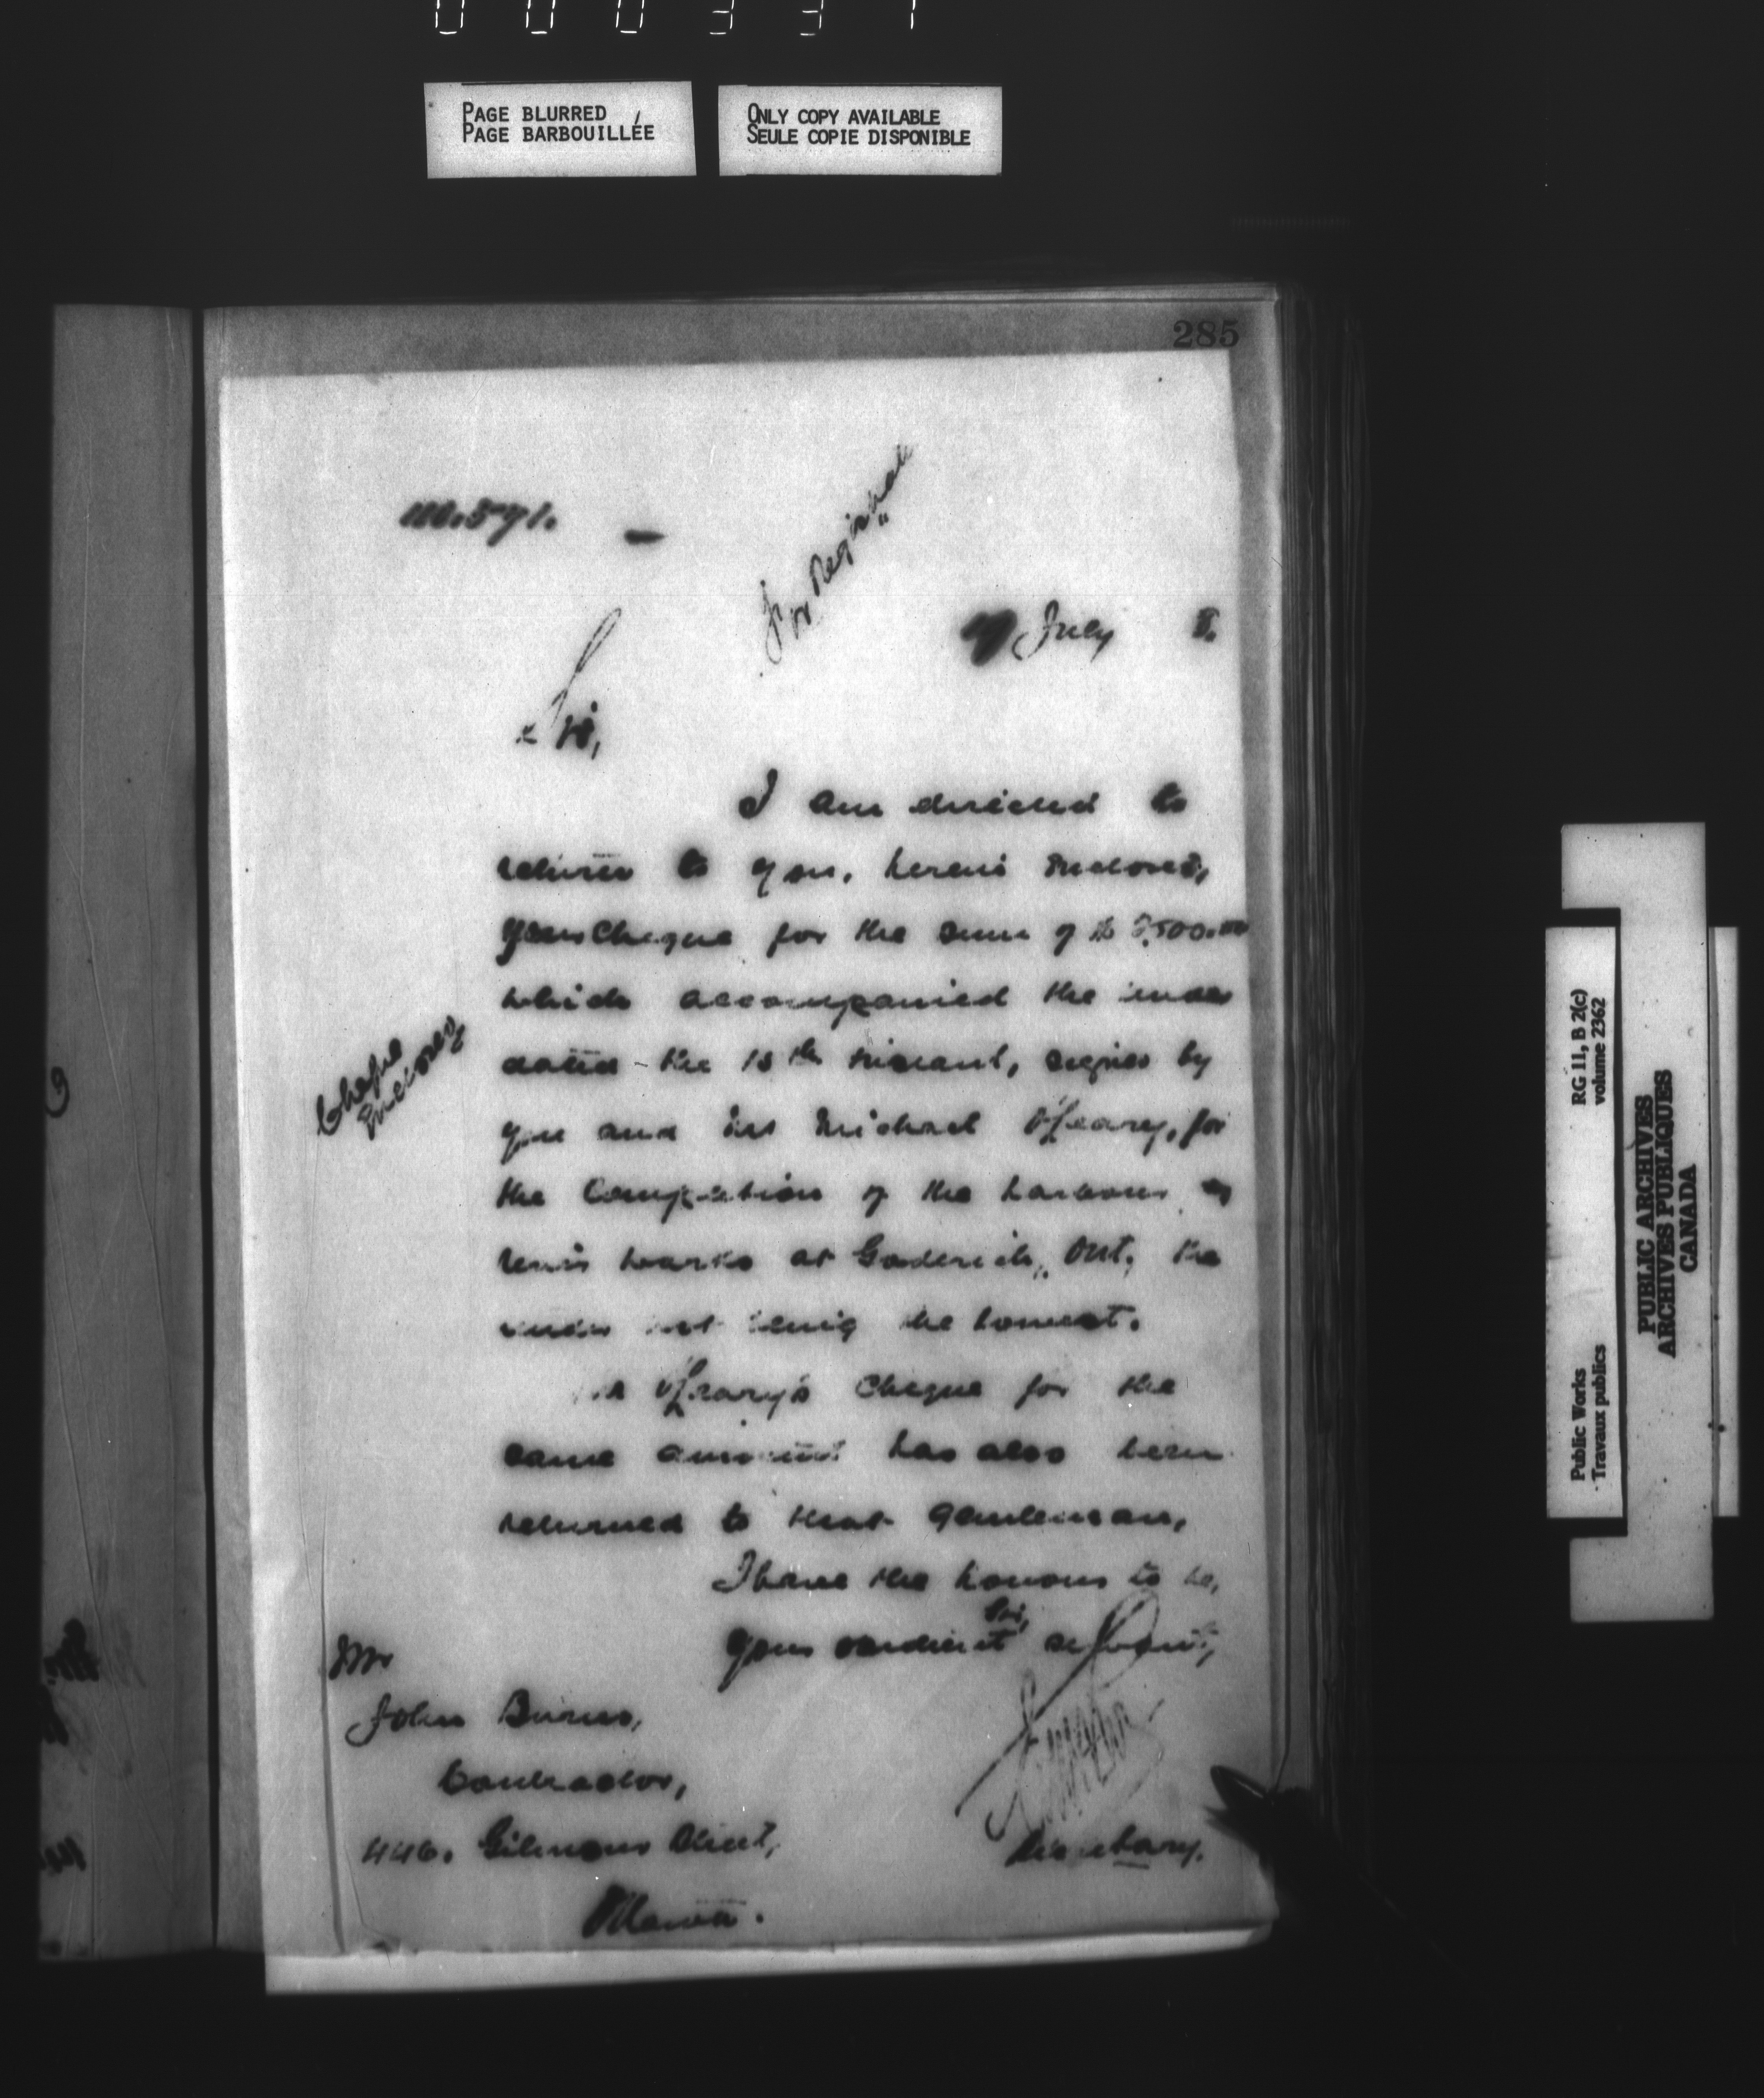 PAGE BLURRED
PAGE BARBOUILLÉE
ONLY COPY AVAILABLE
SEULE COPIE DISPONIBLE
285
For Registration
July
Sir,
I am directed to
return to you, herein inclosed,
your Cheque for the sum of $ 500.00
which accompanied the tender
dated the 18th instant, signed by
you and Mr Michael O'Leary, for
the Completion of the harbour
works at Goderich, Ont, the
tender not being the lowest.
Mr O'Leary's Cheque for the
same amount has also been
returned to that gentleman.
I have the honour to be,
Sir,
Your obedient servant,
Secretary.
Cheque
Inclosed
Mr
John Burns,
Contractor,
446. Gilmour Street,
Ottawa.
Public Works
- Travaux publics
RG 11, B 2(c)
volume 2362
PUBLIC ARCHIVES
ARCHIVES PUBLIQUES
CANADA